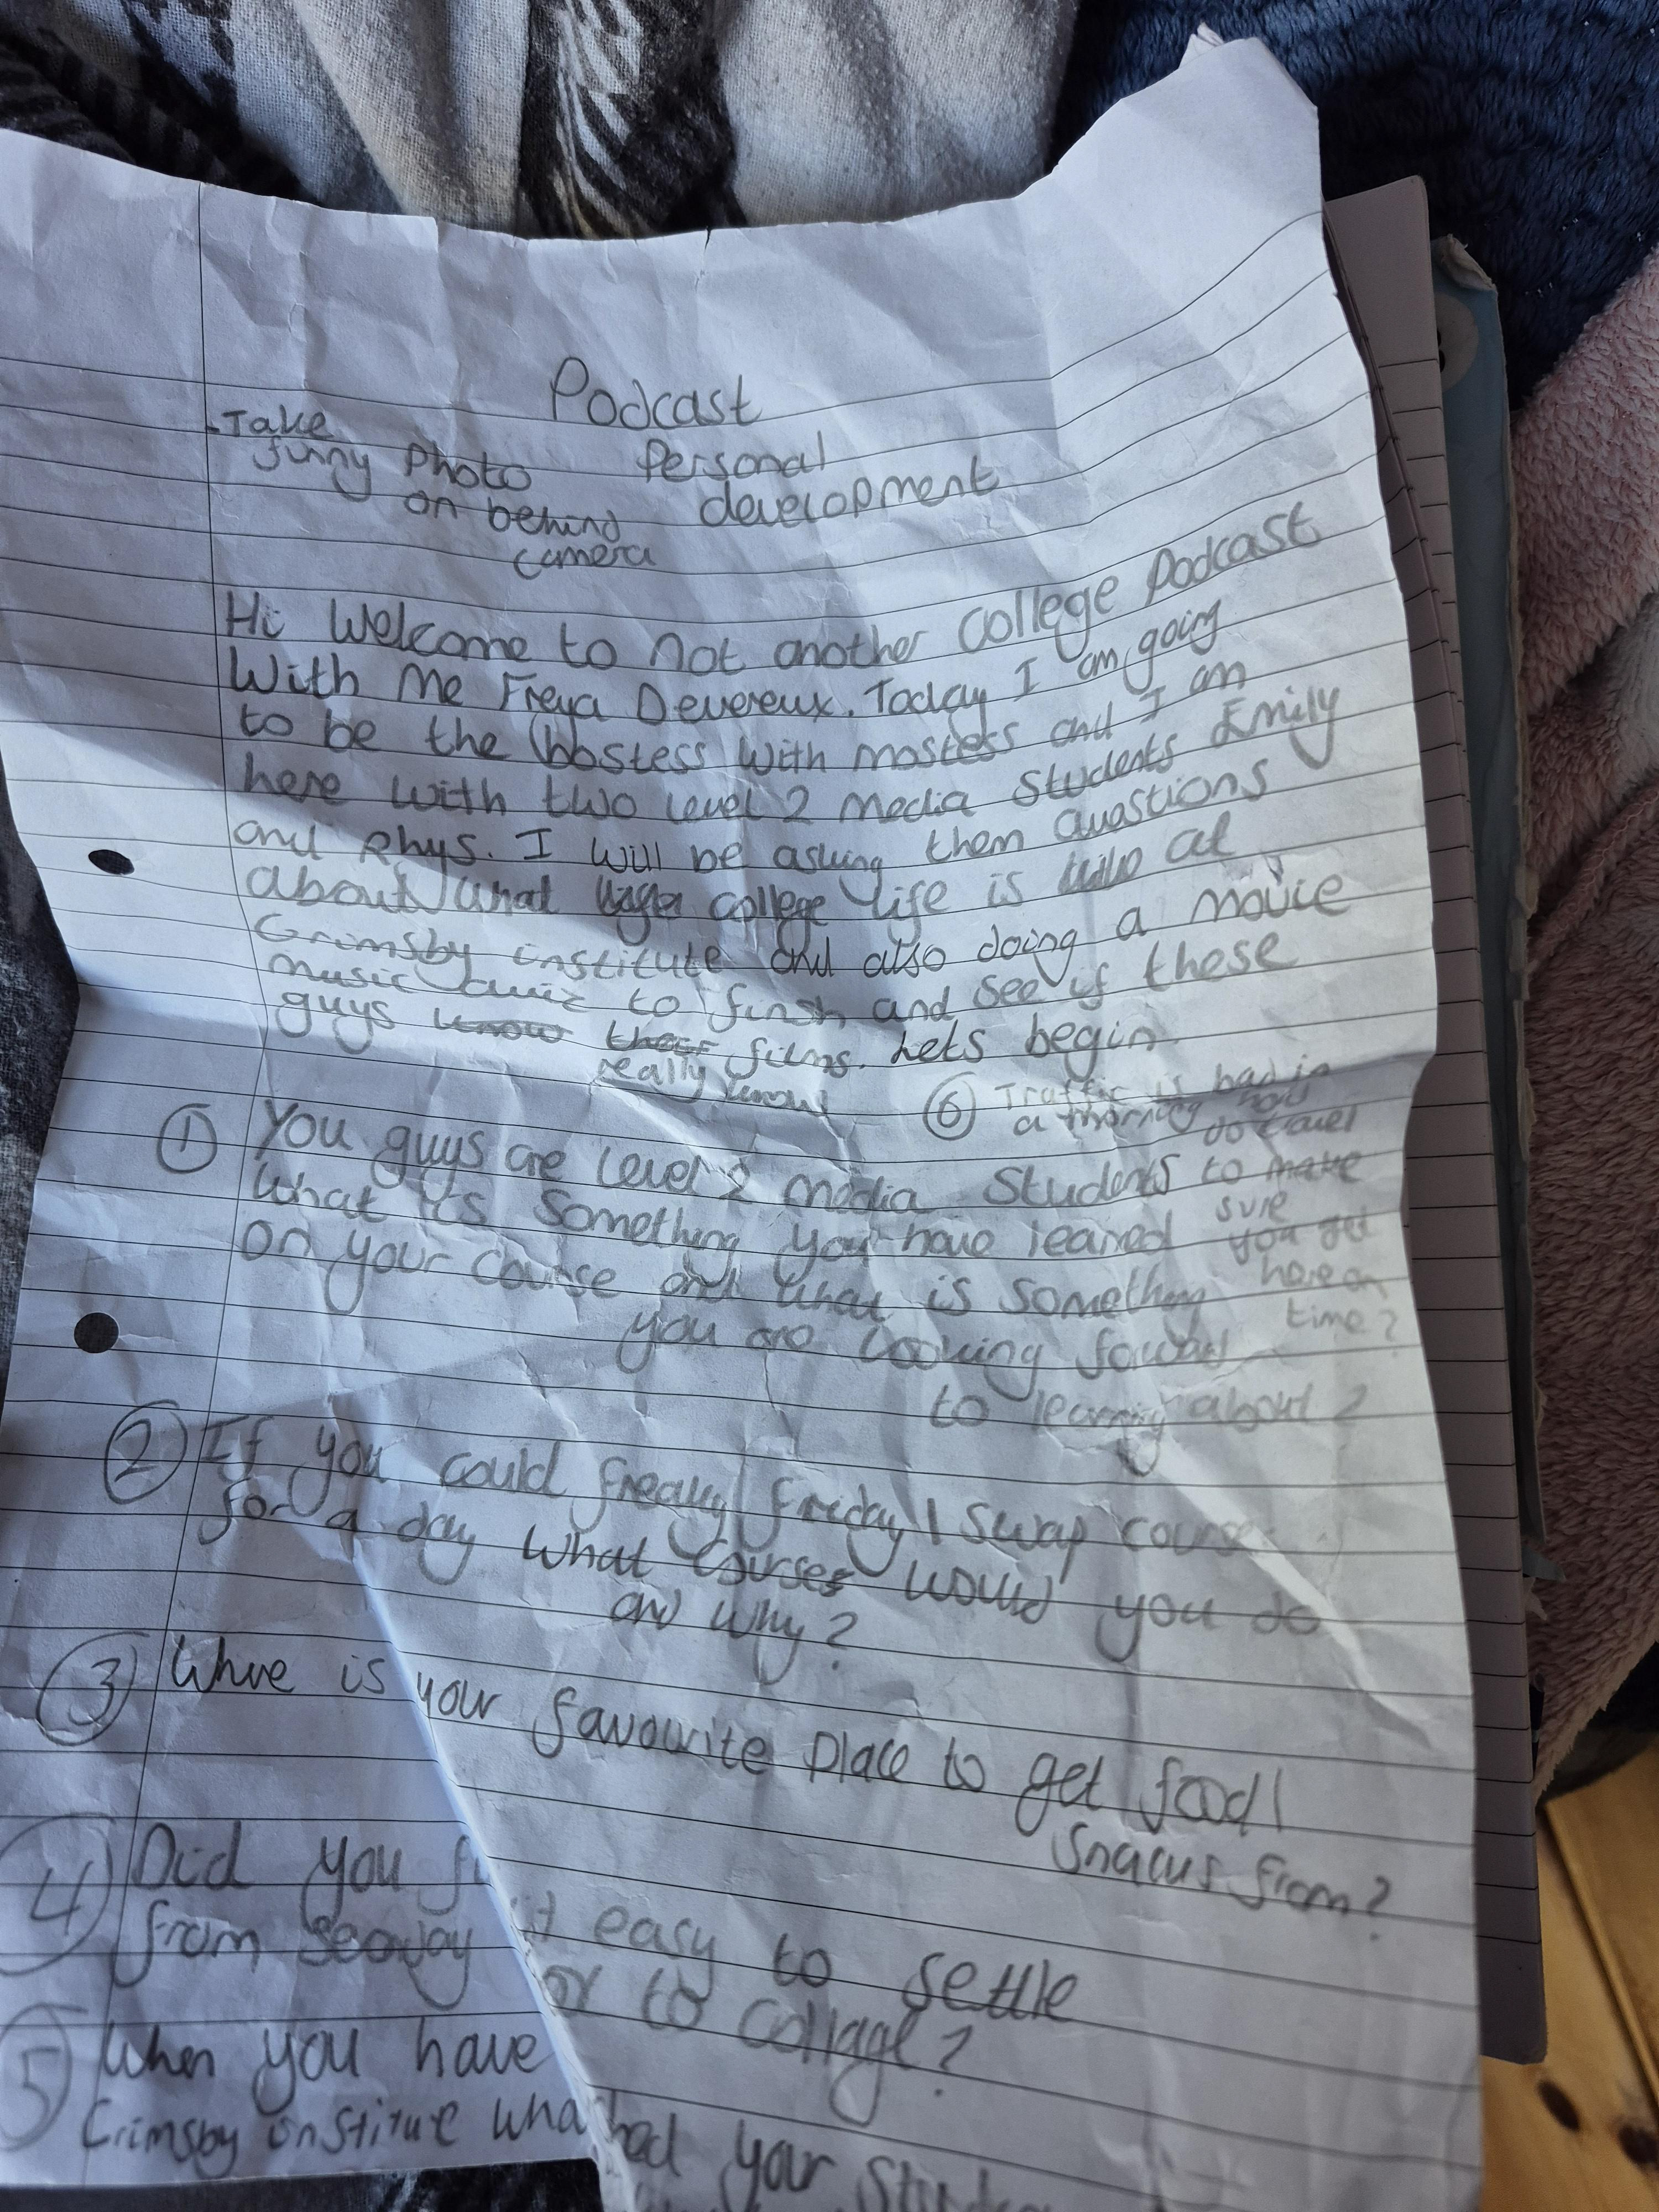 Podcast
- Take
funny Photo
on behind
camera
Personal
development
Hi Welcome to not another College Podcast
With Me Freya Devereux. Today I am going
to be the hostess with mostess and I am
here with two level 2 media students Emily
and Rhys. I will be asking them questions
about what college life is at
Grimsby institute and also doing a movie
music quiz to finsh and see if these
guys know their films. Lets begin
really know
① You guys are level 2 media Students
What is Something you have learned
on your course and what is something
you are looking foward
to learning about?
⑥ Traffic is bad in
a morning how
do travel
to make
sure
you get
here on
time?
② If you could freaky friday / swap course
for a day What courses would you do
and why?
③ Where is your favourite Place to get food/
Snacks from?
④ Did you it easy to settle
from or to College?
⑤ When you have
Grimsby institute your